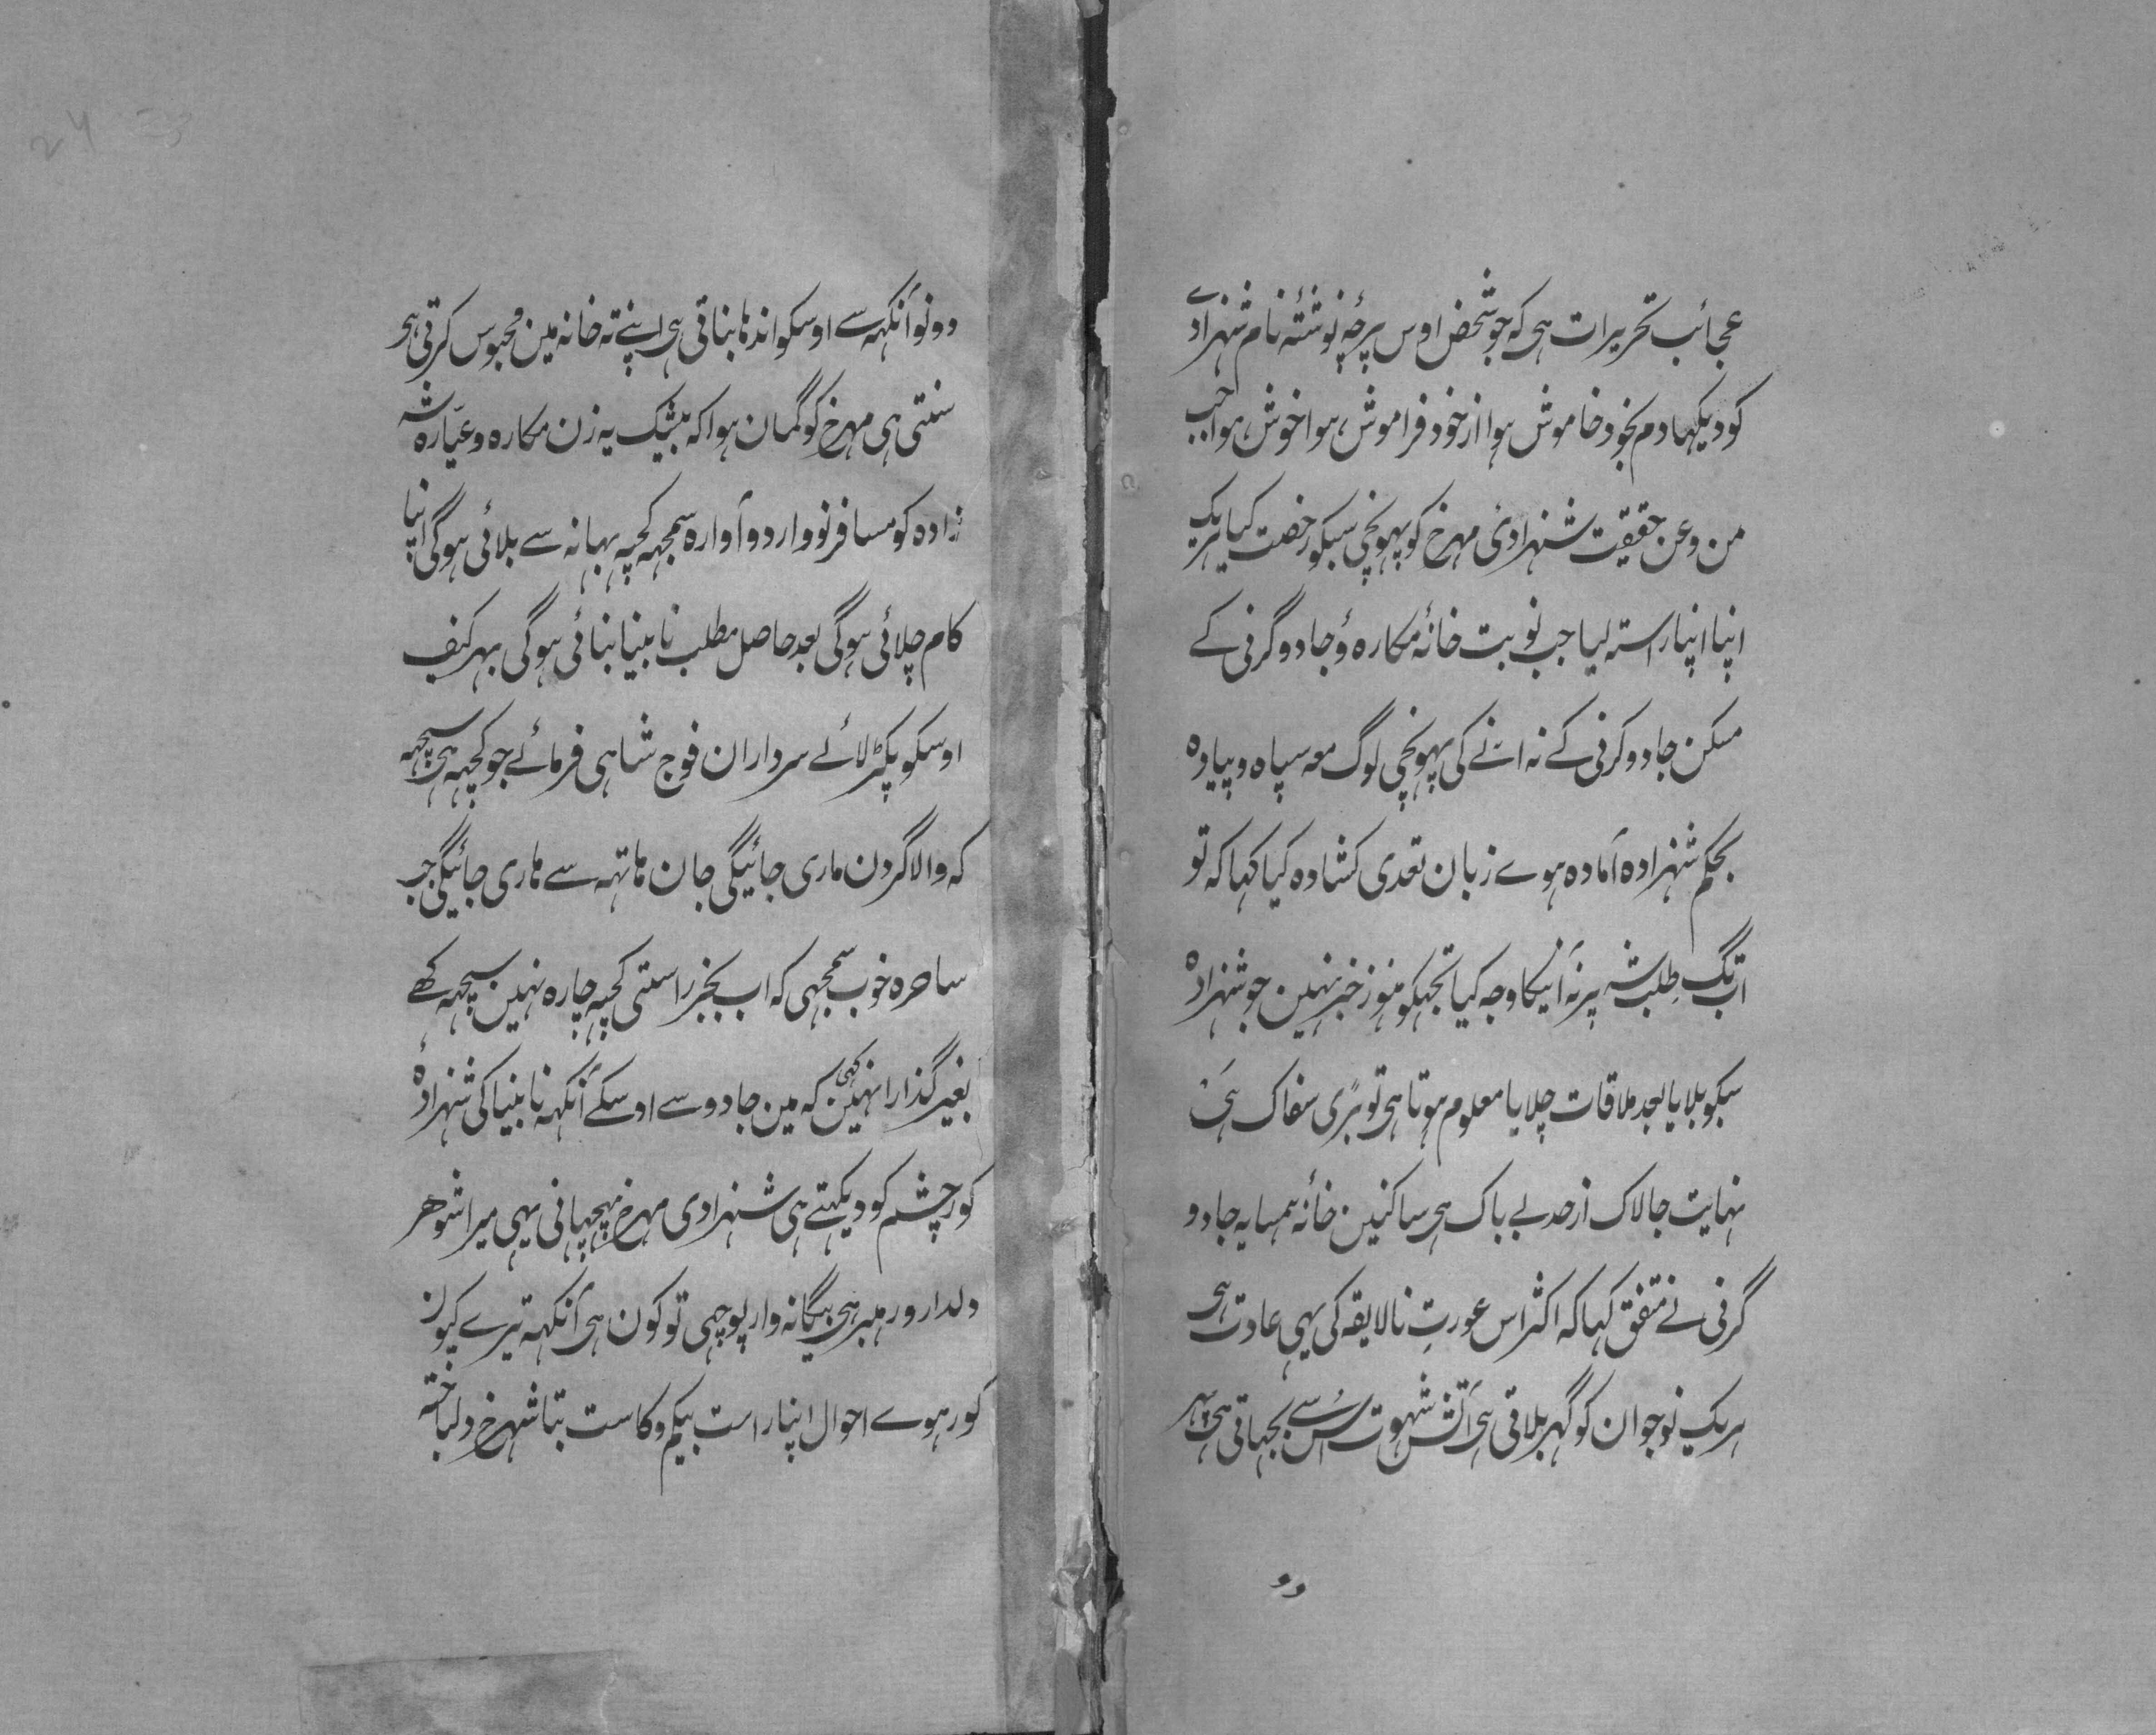 عجائب تحریرات ہی کہ جو شخص اوس پرچہ پر نوشتۂ نام شہزادے
کو دیکہا دم بخود خاموش ہوا از خود فراموش ہوا خوش ہوا جب
من و عن حقیقت شہزادیٔ مہرخ کو پہونچی سبکو رخصت کیا ہریک
اپنا اپنا راستہ لیا جب نوبت خانۂ مکارہ ؤ جادوگرنی کے
مسکن جادوگرنی کے نہ اسنے کی پہونچی لوگ معہ سپاہ و پیادہ
بحکم شہزادہ آمادہ ہوے زبان تعدی کشادہ کیا کہا کہ تو
اب تک طلب شہ پر نہ آئیکا وجہ کیا تجہکو ہنوز خبر نہین جو شہزادہ
سبکو بلایا بعد ملاقات چلایا معلوم ہوتا ہی تو بڑی سفاک ہی
نہایت چالاک از حد بے باک ہی ساکنین خانۂ ہمسایہ جادو
گرنی نے متفق کہا کہ اکثر اس عورتِ نالایقہ کی یہی عادت ہی
ہریک نوجوان کو گہر بلاتی ہی آتش شہوت اُس سے بجہاتی ہی پہر
دو
دونو آنکہہ سے اوسکو اندہا بناتی ہی اپنے تہ خانہ مین محبوس کرتی ہی
سنتی ہی مہرخ کو گمان ہوا کہ بیشک یہ زن مکارہ و عیّارہ شہ
زادہ کو مسافر نووارد و آوارہ سمجہہ کچہہ بہانہ سے بلائی ہوگی اپنا
کام چلائی ہوگی بعد حاصل مطلب نابینا بنائی ہوگی بہر کیف
اوسکو پکڑ لائے سرداران فوج شاہی فرمائے جو کچہہ ہی سچہہ
کہہ والا گردن ماری جائیگی جان ہاتہہ سے ہاری جائیگی جب
ساحرہ خوب سمجہی کہ اب بجز راستی کچہہ چارہ نہین سچہہ کہے
بغیر گذارا نہین کہی کہ مین جادو سے اوسکے آنکہہ نابینا کی شہزادہٴ
کور چشم کو دیکہتے ہی شہزادی مہرخ پہچانی یہی میرا شوہر
دلدار و رہبر ہی بیگانہ وار پوچہی تو کون ہی آنکہہ تیرے کیون
کور ہوے احوال اپنا راست بیکم و کاست بتا شہرخ دلباختہ